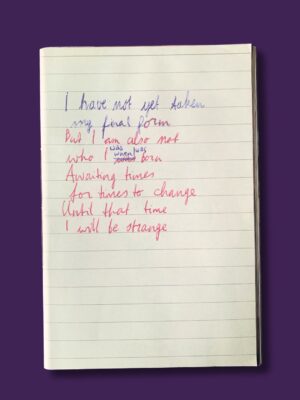 I have not yet taken
my final form
But I am also not
who I was when I was born
Awaiting times
for times to change
Until that time
I will be strange